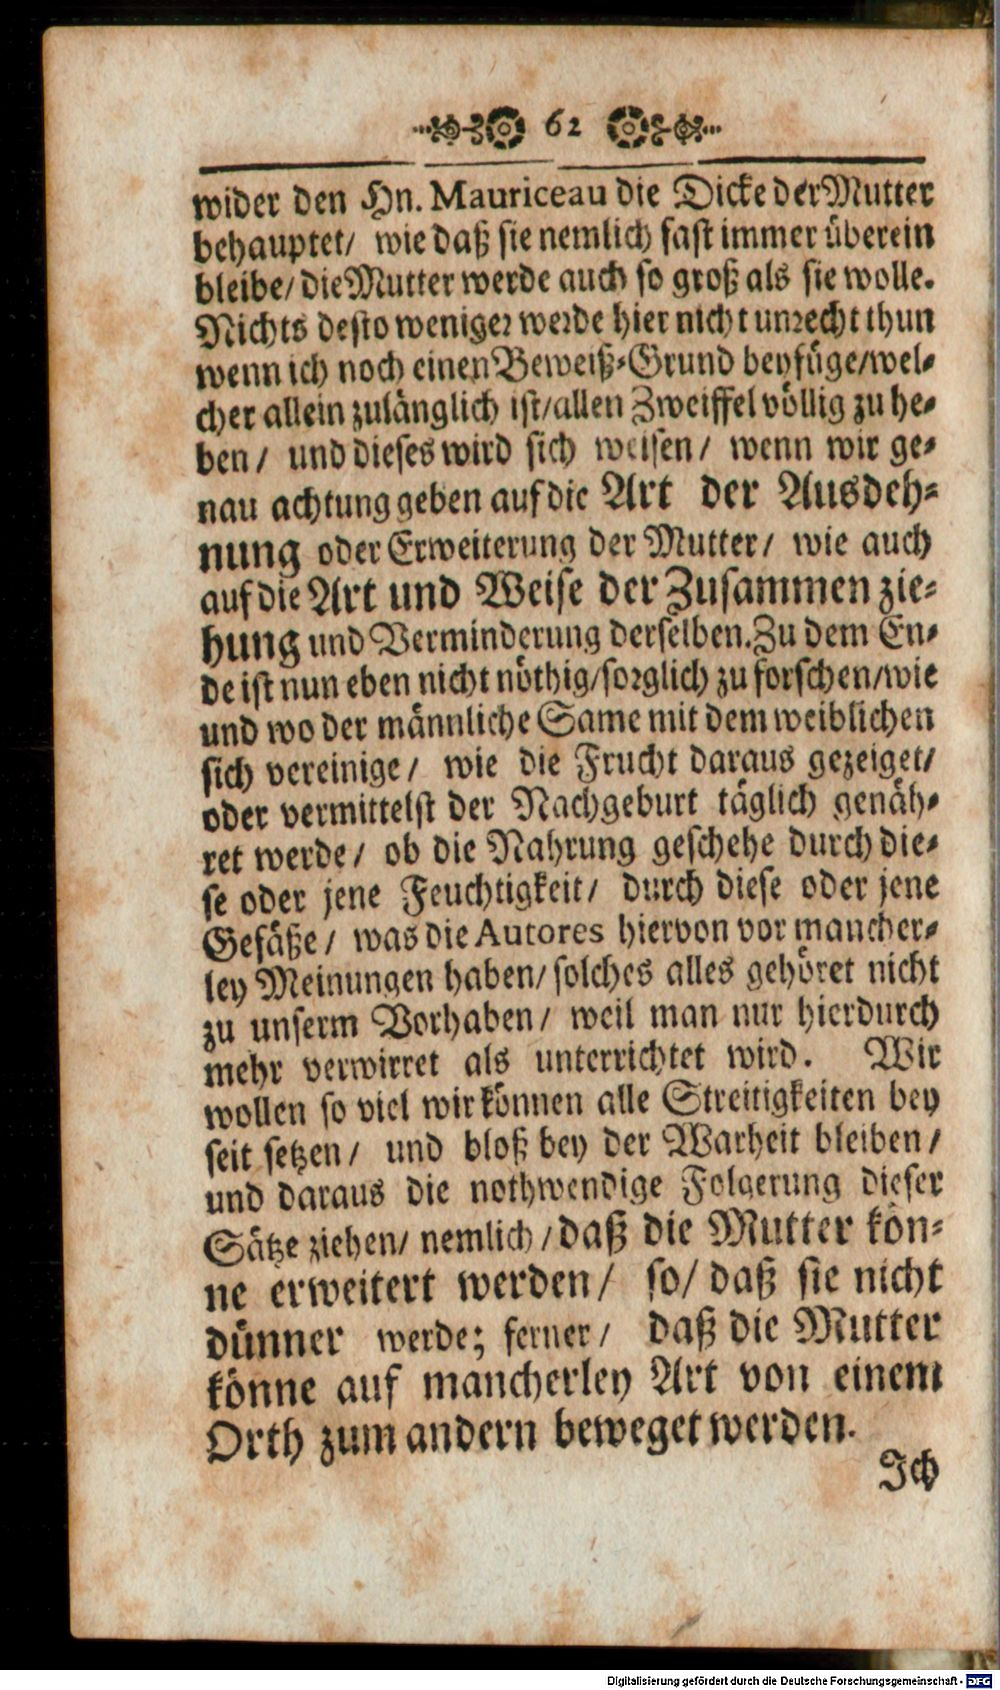 62
wider den Hn. Mauriceau die Dicke der Mutter
behauptet/ wie daß sie nemlich fast immer überein
bleibe/ die Mutter werde auch so groß als sie wolle.
Nichts desto weniger werde hier nicht unrecht thun
wenn ich noch einen Beweiß-Grund beyfüge/wel-
cher allein zulänglich ist/allen Zweiffel völlig zu he-
ben/ und dieses wird sich weisen/ wenn wir ge-
nau achtung geben auf die Art der Ausdeh-
nung oder Erweiterung der Mutter/ wie auch
auf die Art und Weise der Zusammen zie-
hung und Verminderung derselben. Zu dem En-
de ist nun eben nicht nöthig/sorglich zu forschen/wie
und wo der männliche Same mit dem weiblichen
sich vereinige/ wie die Frucht daraus gezeiget/
oder vermittelst der Nachgeburt täglich genäh-
ret werde/ ob die Nahrung geschehe durch die-
se oder jene Feuchtigkeit/ durch diese oder jene
Gefäße/ was die Autores hiervon vor mancher-
ley Meinungen haben/ solches alles gehöret nicht
zu unserm Vorhaben/ weil man nur hierdurch
mehr verwirret als unterrichtet wird. Wir
wollen so viel wir können alle Streitigkeiten bey
seit setzen/ und bloß bey der Warheit bleiben/
und daraus die nothwendige Folgerung dieser
Sätze ziehen/ nemlich/ daß die Mutter kön-
ne erweitert werden/ so/ daß sie nicht
dünner werde; ferner/ daß die Mutter
könne auf mancherley Art von einem
Orth zum andern beweget werden.
Ich
Digitalisierung gefördert durch die Deutsche Forschungsgemeinschaft - DFG